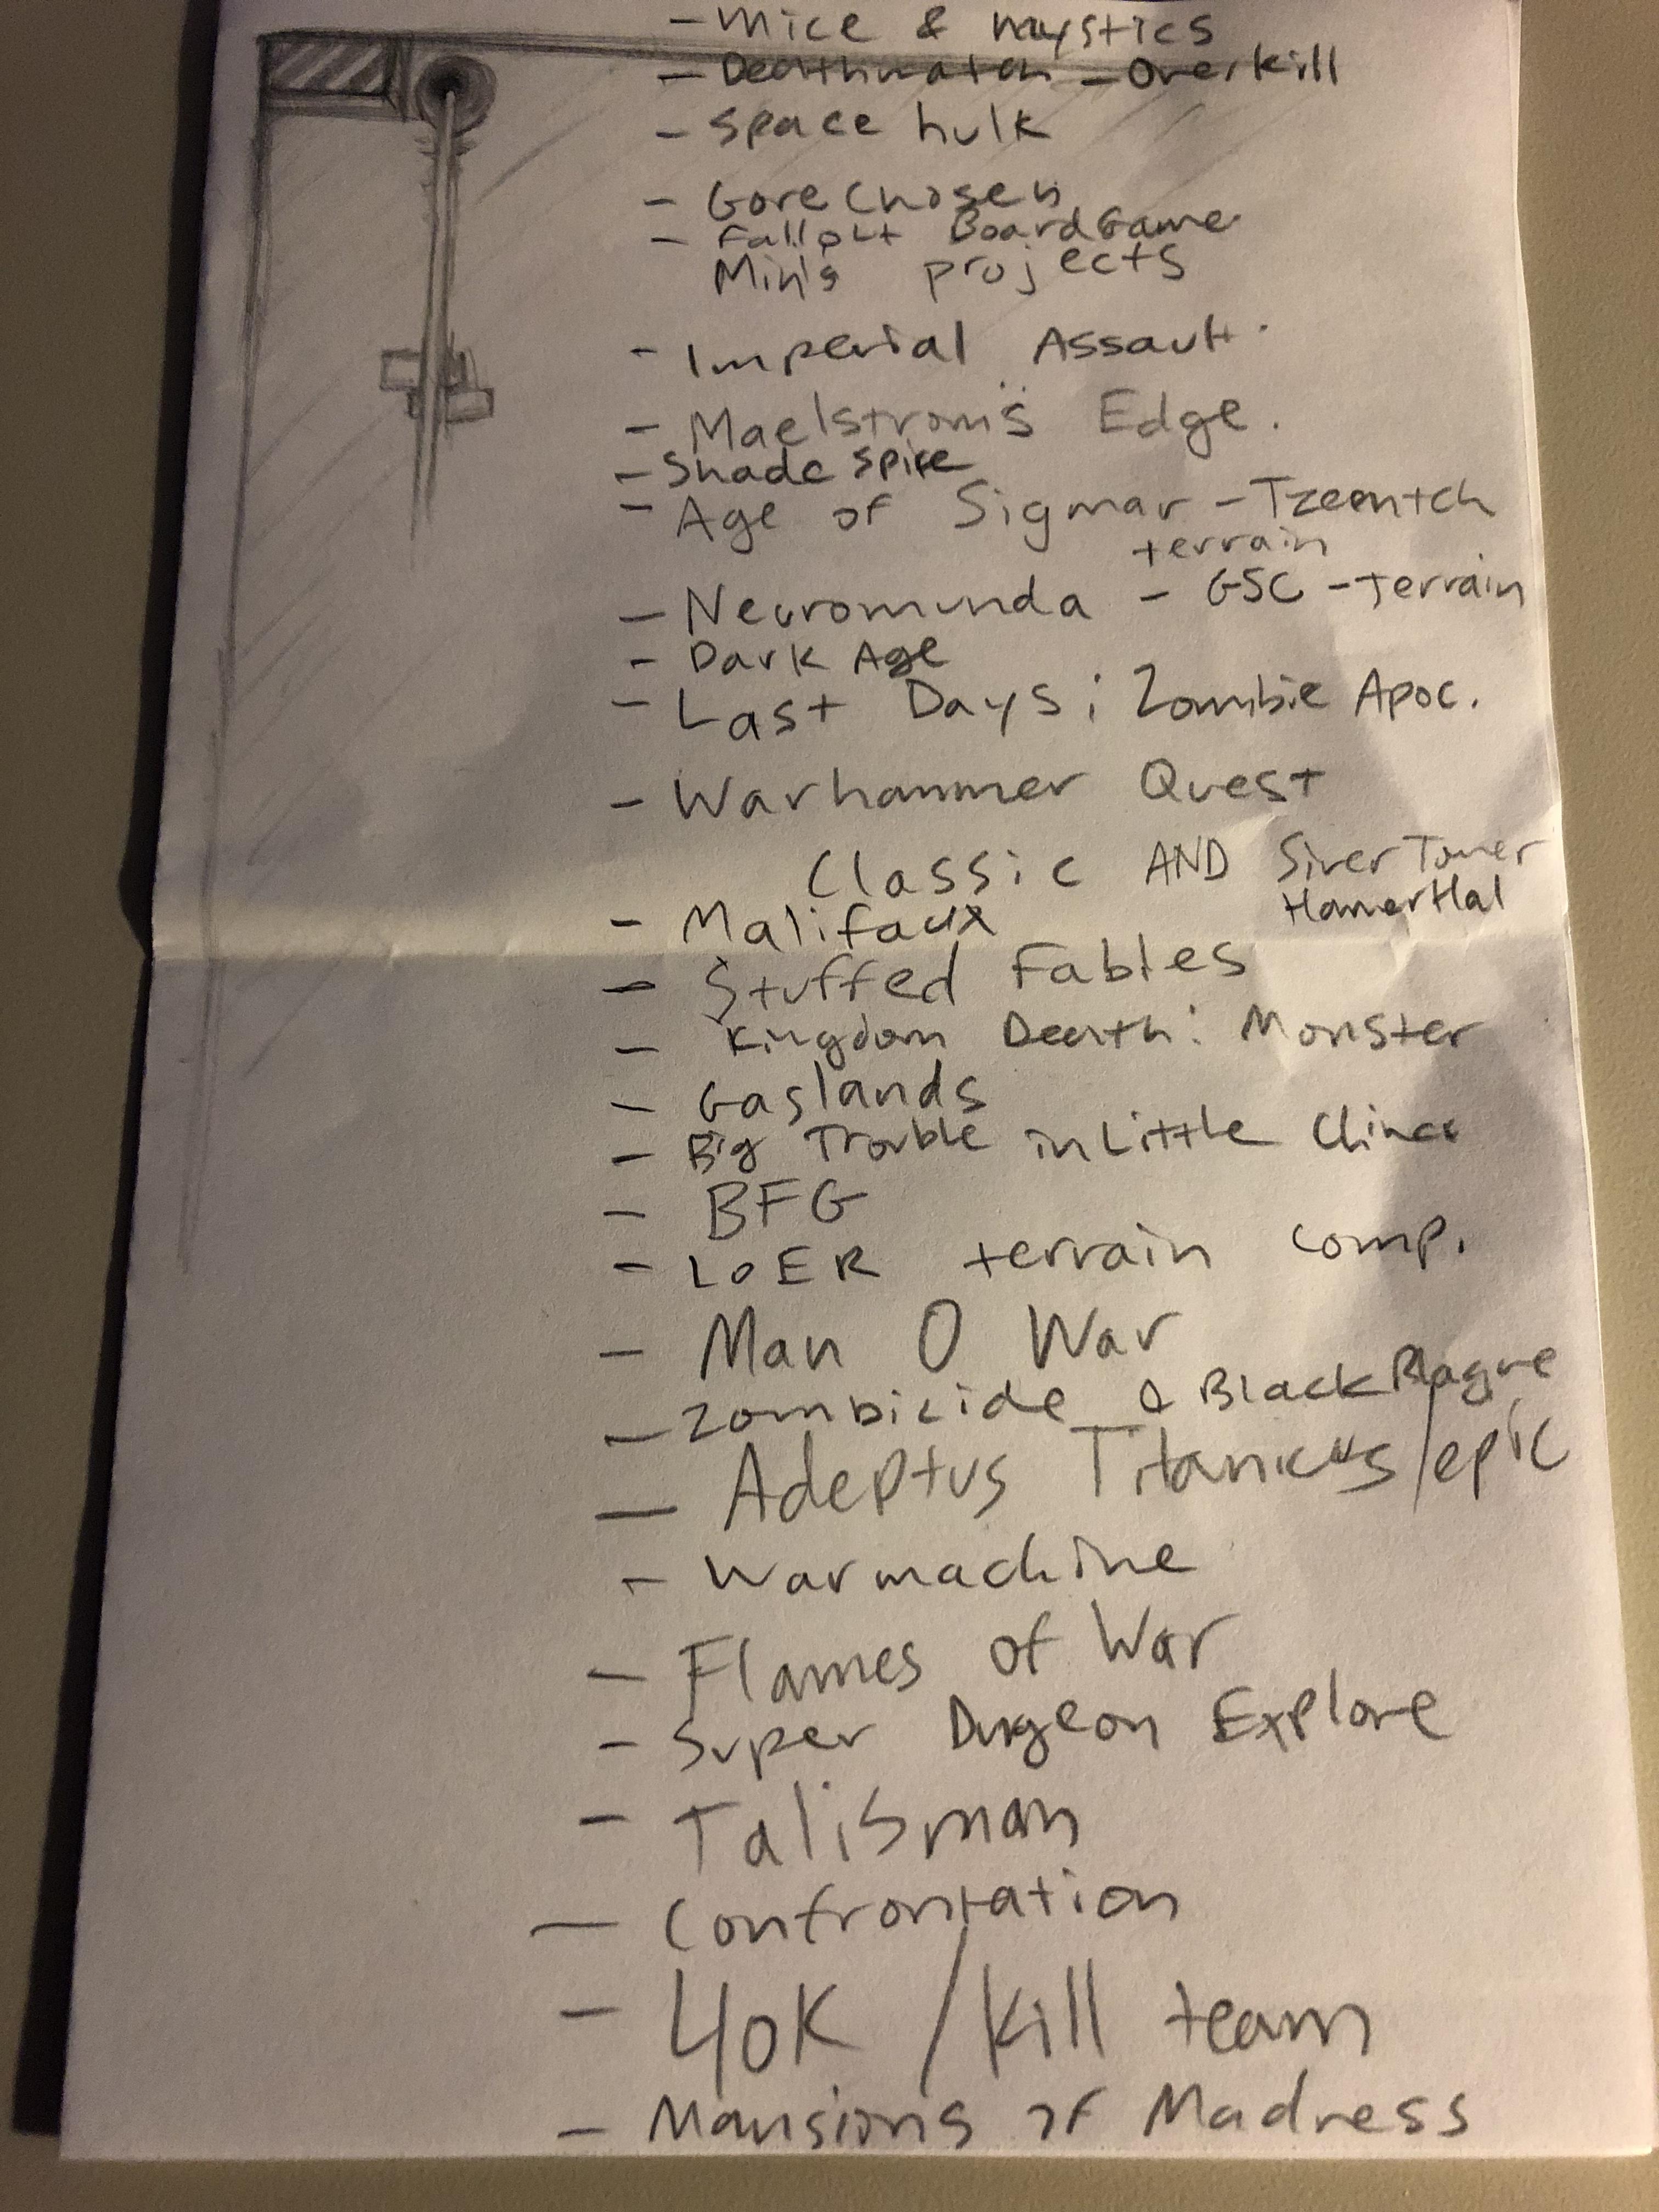 - Mice & Mystics
- Deathwatch - Overkill
- Space hulk
- Gorechosen
- Fallout BoardGame
Minis projects
- Imperial Assault.
- Maelstrom's Edge.
- Shade spire
- Age of Sigmar - Tzeentch
terrain
- Necromunda - GSC - Terrain
- Dark Age
- Last Days: Zombie Apoc.
- Warhammer Quest
Classic AND Siver Tower
HamerHal
- Malifaux
- Stuffed Fables
- Kingdom Death: Monster
- Gaslands
- Big Trouble in Little China
- BFG
- LOER terrain comp.
- Man O War
- Zombicide & Black Plague
- Adeptus Titanicus/epic
- Warmachine
- Flames of War
- Super Dugeon Explore
- Talisman
- Confrontation
- 40K / Kill team
- Mansions of Madness